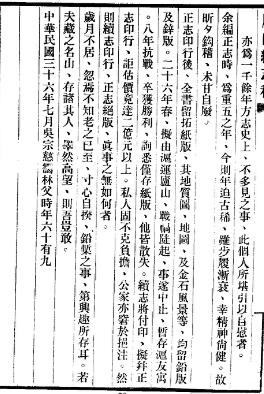 亦爲一千餘年方志史上、不多見之事、此個人所堪引以自慰者。
余編正志時、爲重五之年、今則年迫古稀、雖步履漸衰、幸精神尚健。故
昕夕鈎稽、未甘自廢。
正志印行後、全書留拓紙版、其地質圖、地圖、及金石風景等、均留鉛版
及鋅版。二十六年春、擬由滬運廬山、戰禍陡起、事遂中止、暫存滬友寓
。八年抗戰、卒獲勝利、詢悉僅存紙版、他皆散失。續志將付印、擬幷正
志印行、詎估價竟達二億元以上。私人固不克負擔、公家亦窘於挹注。然
則續志印行、正志絕版、眞事之無如何者。
歲月不居、忽焉不知老之已至、寸心自揆、鉛槧之事、第興趣所存耳。若
夫藏之名山、存諸其人、睪然高望、則吾豈敢。
中華民國三十六年七月吳宗慈靄林父時年六十有九